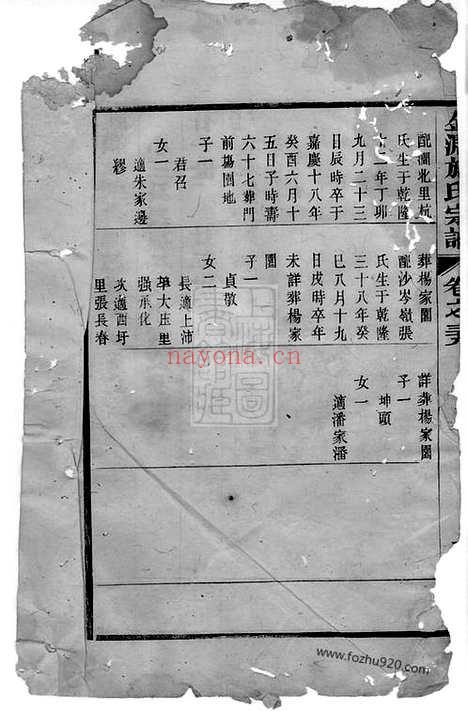 施氏宗譜
配蘭北里杭
氏生于乾隆
十二年丁卯
九月二十三
日辰時卒于
嘉慶十八年
癸酉六月十
五日子時壽
六十七葬門
前塲園地
子一
君召
女一
適朱家邊
繆
葬楊家園
配沙岑嶺張
氏生于乾隆
三十八年癸
巳八月十九
日戌時卒年
未詳葬楊家
園
子一
貞敬
女二
長適上沛
莘大庄里
强承化
次適酉圩
里張長春
詳葬楊家園
子一
坤頭
女一
適潘家潘
nayona.cn
www.fozhu920.com